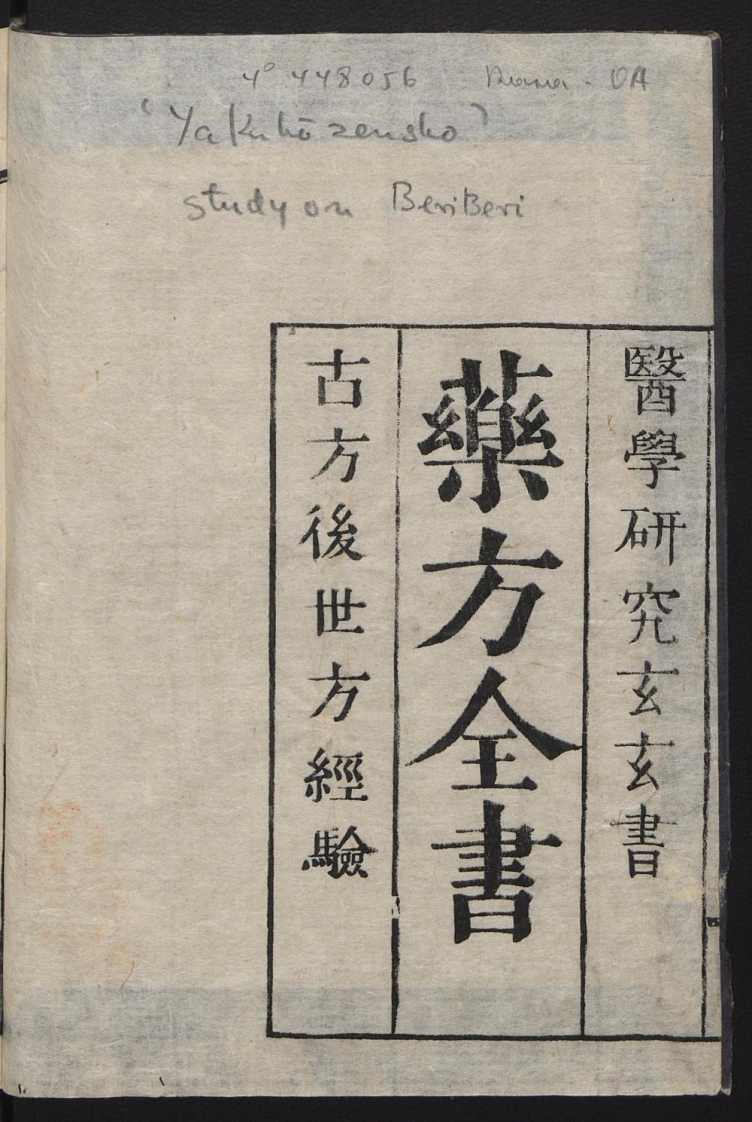 4° 448056 OA
'Yakuhō zensho'
study on BeriBeri
醫學研究玄玄書
藥方全書
古方後世方經驗